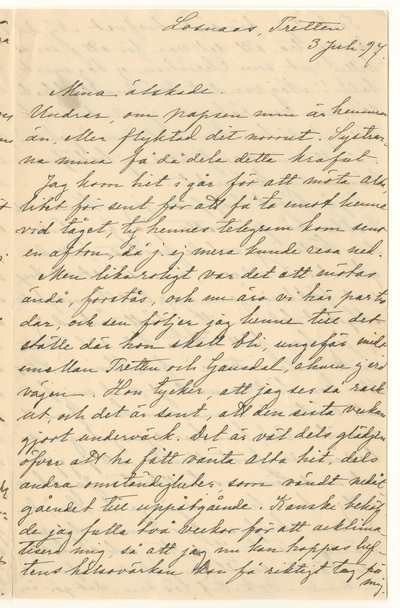 Losnaas, Tretten
3 Juli 97.
Mina älskade.
Undrar, om papsen min är hemma
än, eller flyktad det norrut. Systrar-
na mina få då dela detta krafset
Jag kom hit i går för att möta Alba
likt för sent för att få ta emot henne
vid tåget, ty hennes telegram kom sent
en afton, då j. ej mera kunde resa ned.
Men lika roligt var det att mötas
ändå, förstås, och nu äro vi här par tre
dar, och sen följer jag henne till det
ställe där hon skall bli, ungefär midt
emellan Tretten och Gausdal,
vägen. Hon tycker, att jag ser så rask
ut, och det är sant, att den sista veckan
gjort undervärk. Det är väl dels glädjen
öfver att ha fått vänta Alba hit, dels
andra omständigheter som vändt nedåt
gåendet till uppåtgående. Kanske behöf
de jag fulla två veckor för att acklima
tisera mig, så att jag nu kan hoppas luf
tens hälsovärkan kan få riktigt tag på
mig.